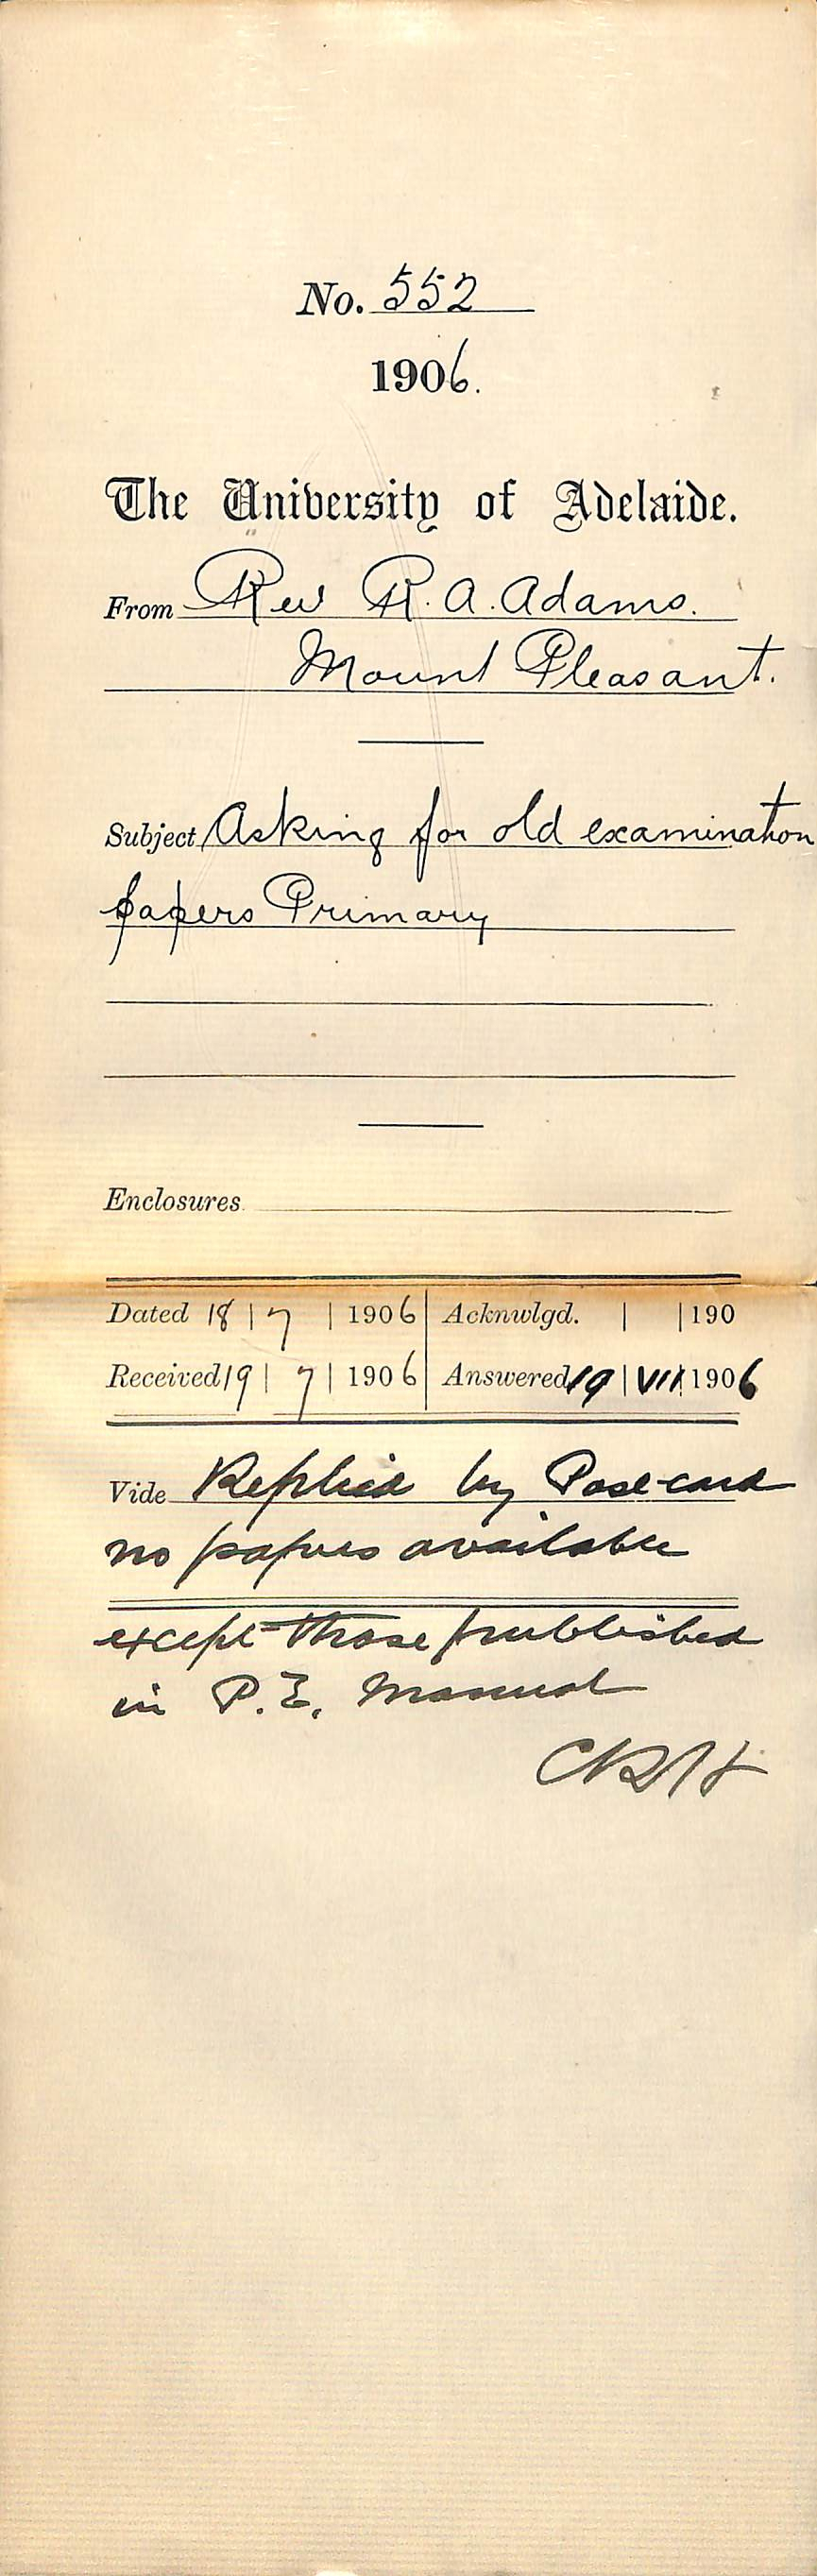 No. 552
1906.
The University of Adelaide.
From Rev R. A. Adams.
Mount Pleasant.
Subject Asking for old examination
papers Primary
Enclosures
Dated 18 | 7 | 1906 | Acknwlgd. | | 190
Received 19 | 7 | 1906 | Answered 19 | VII | 1906
Vide Replied by Post-card
no papers available
except those published
in P.E. Manual